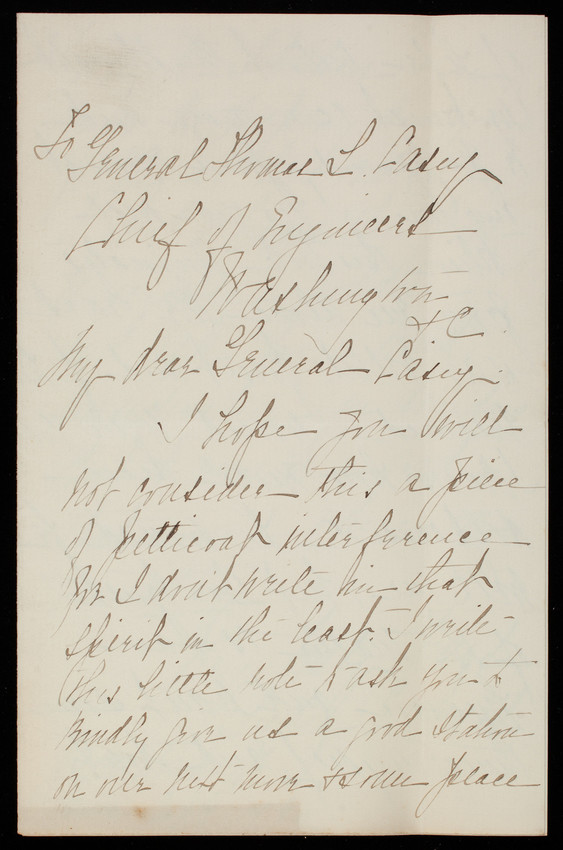 To General Thomas L. Casey
Chief of Engineers
Washington
D C
My dear General Casey.
I hope you will
not consider this a piece
of petticoat interference
for I don't write in that
spirit in the least. I write
this little note to ask you to
kindly give us a good station
on our next move to some place